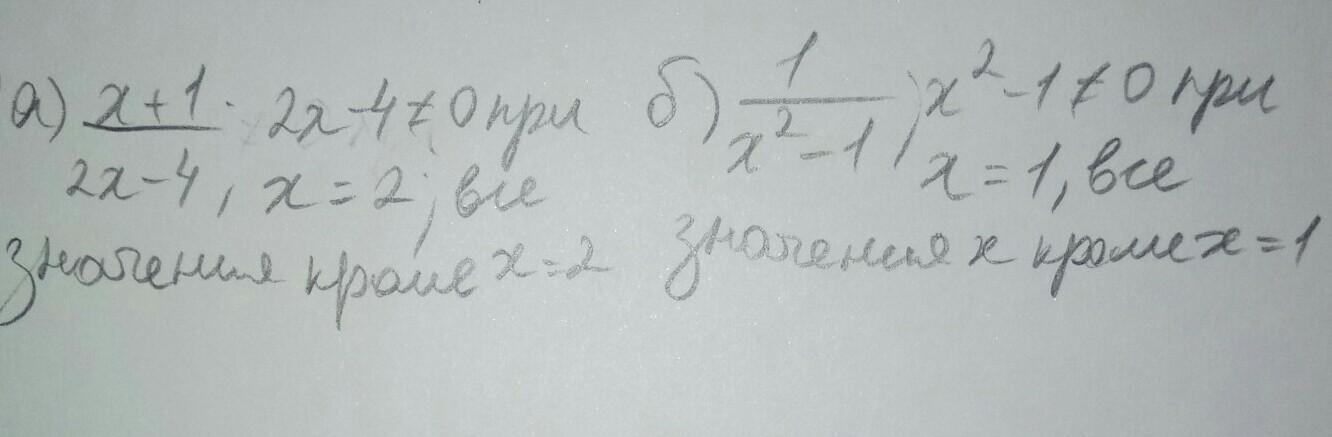 а) x+1/2x-4, 2x-4≠0 при
x=2; все
значения кроме x=2
б) 1/x²-1, x²-1≠0 при
x=1, все
значения x кроме x=1